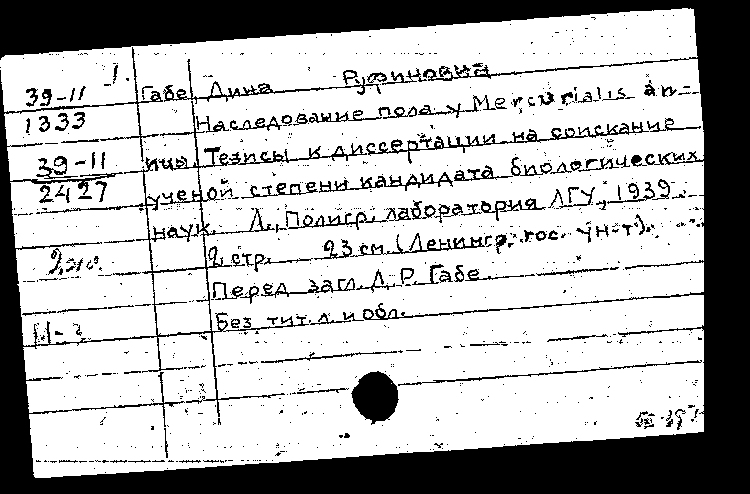 1.
39-11
1333
39-11
2427
2 экз.
Габе, Дина Руфиновна
Наследование пола у Mercurialis an-
nua. Тезисы к диссертации на соискание
ученой степени кандидата биологических
наук. Л., Полигр. лаборатория ЛГУ, 1939.
2 стр. 23 см. (Ленингр. гос. ун-т).
Перед загл. Д. Р. Габе
Без тит. л. и обл.